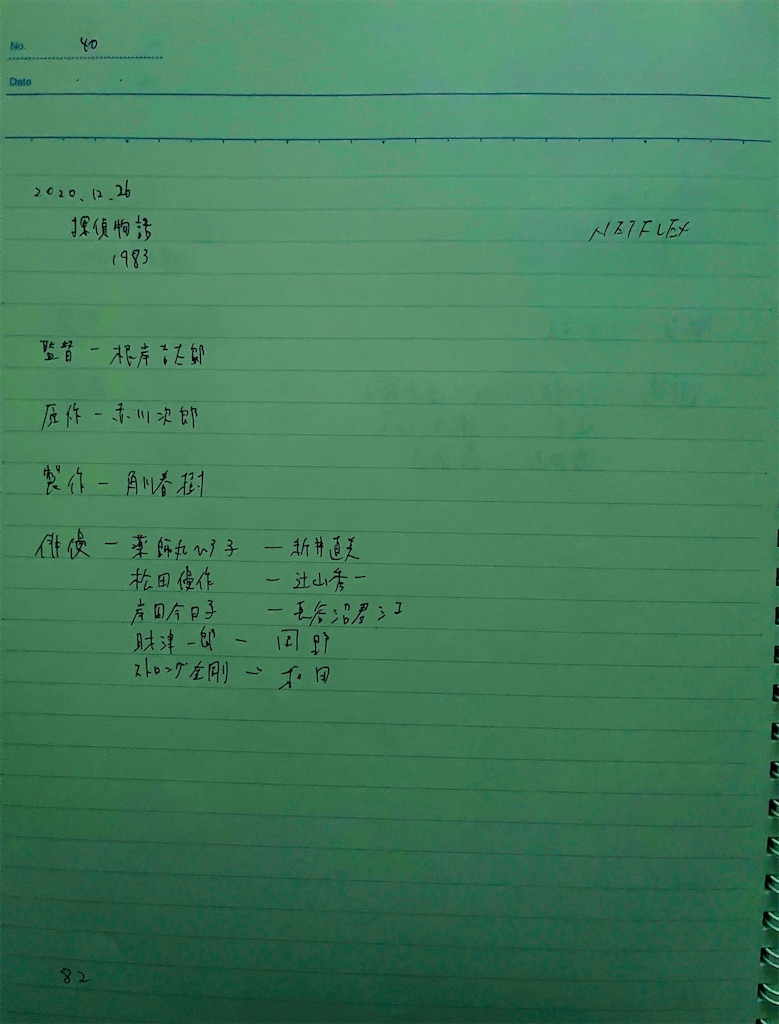 No. 40
Date
2020.12.26
探偵物語
NETFLEX
1983
監督 - 根岸吉太郎
原作 - 赤川次郎
製作 - 角川春樹
俳優 - 薬師丸ひろ子 - 新井直美
松田優作 - 辻山秀一
岸田今日子 - 長谷沼君江
財津一郎 - 岡野
ストロング金剛 - 和田
82